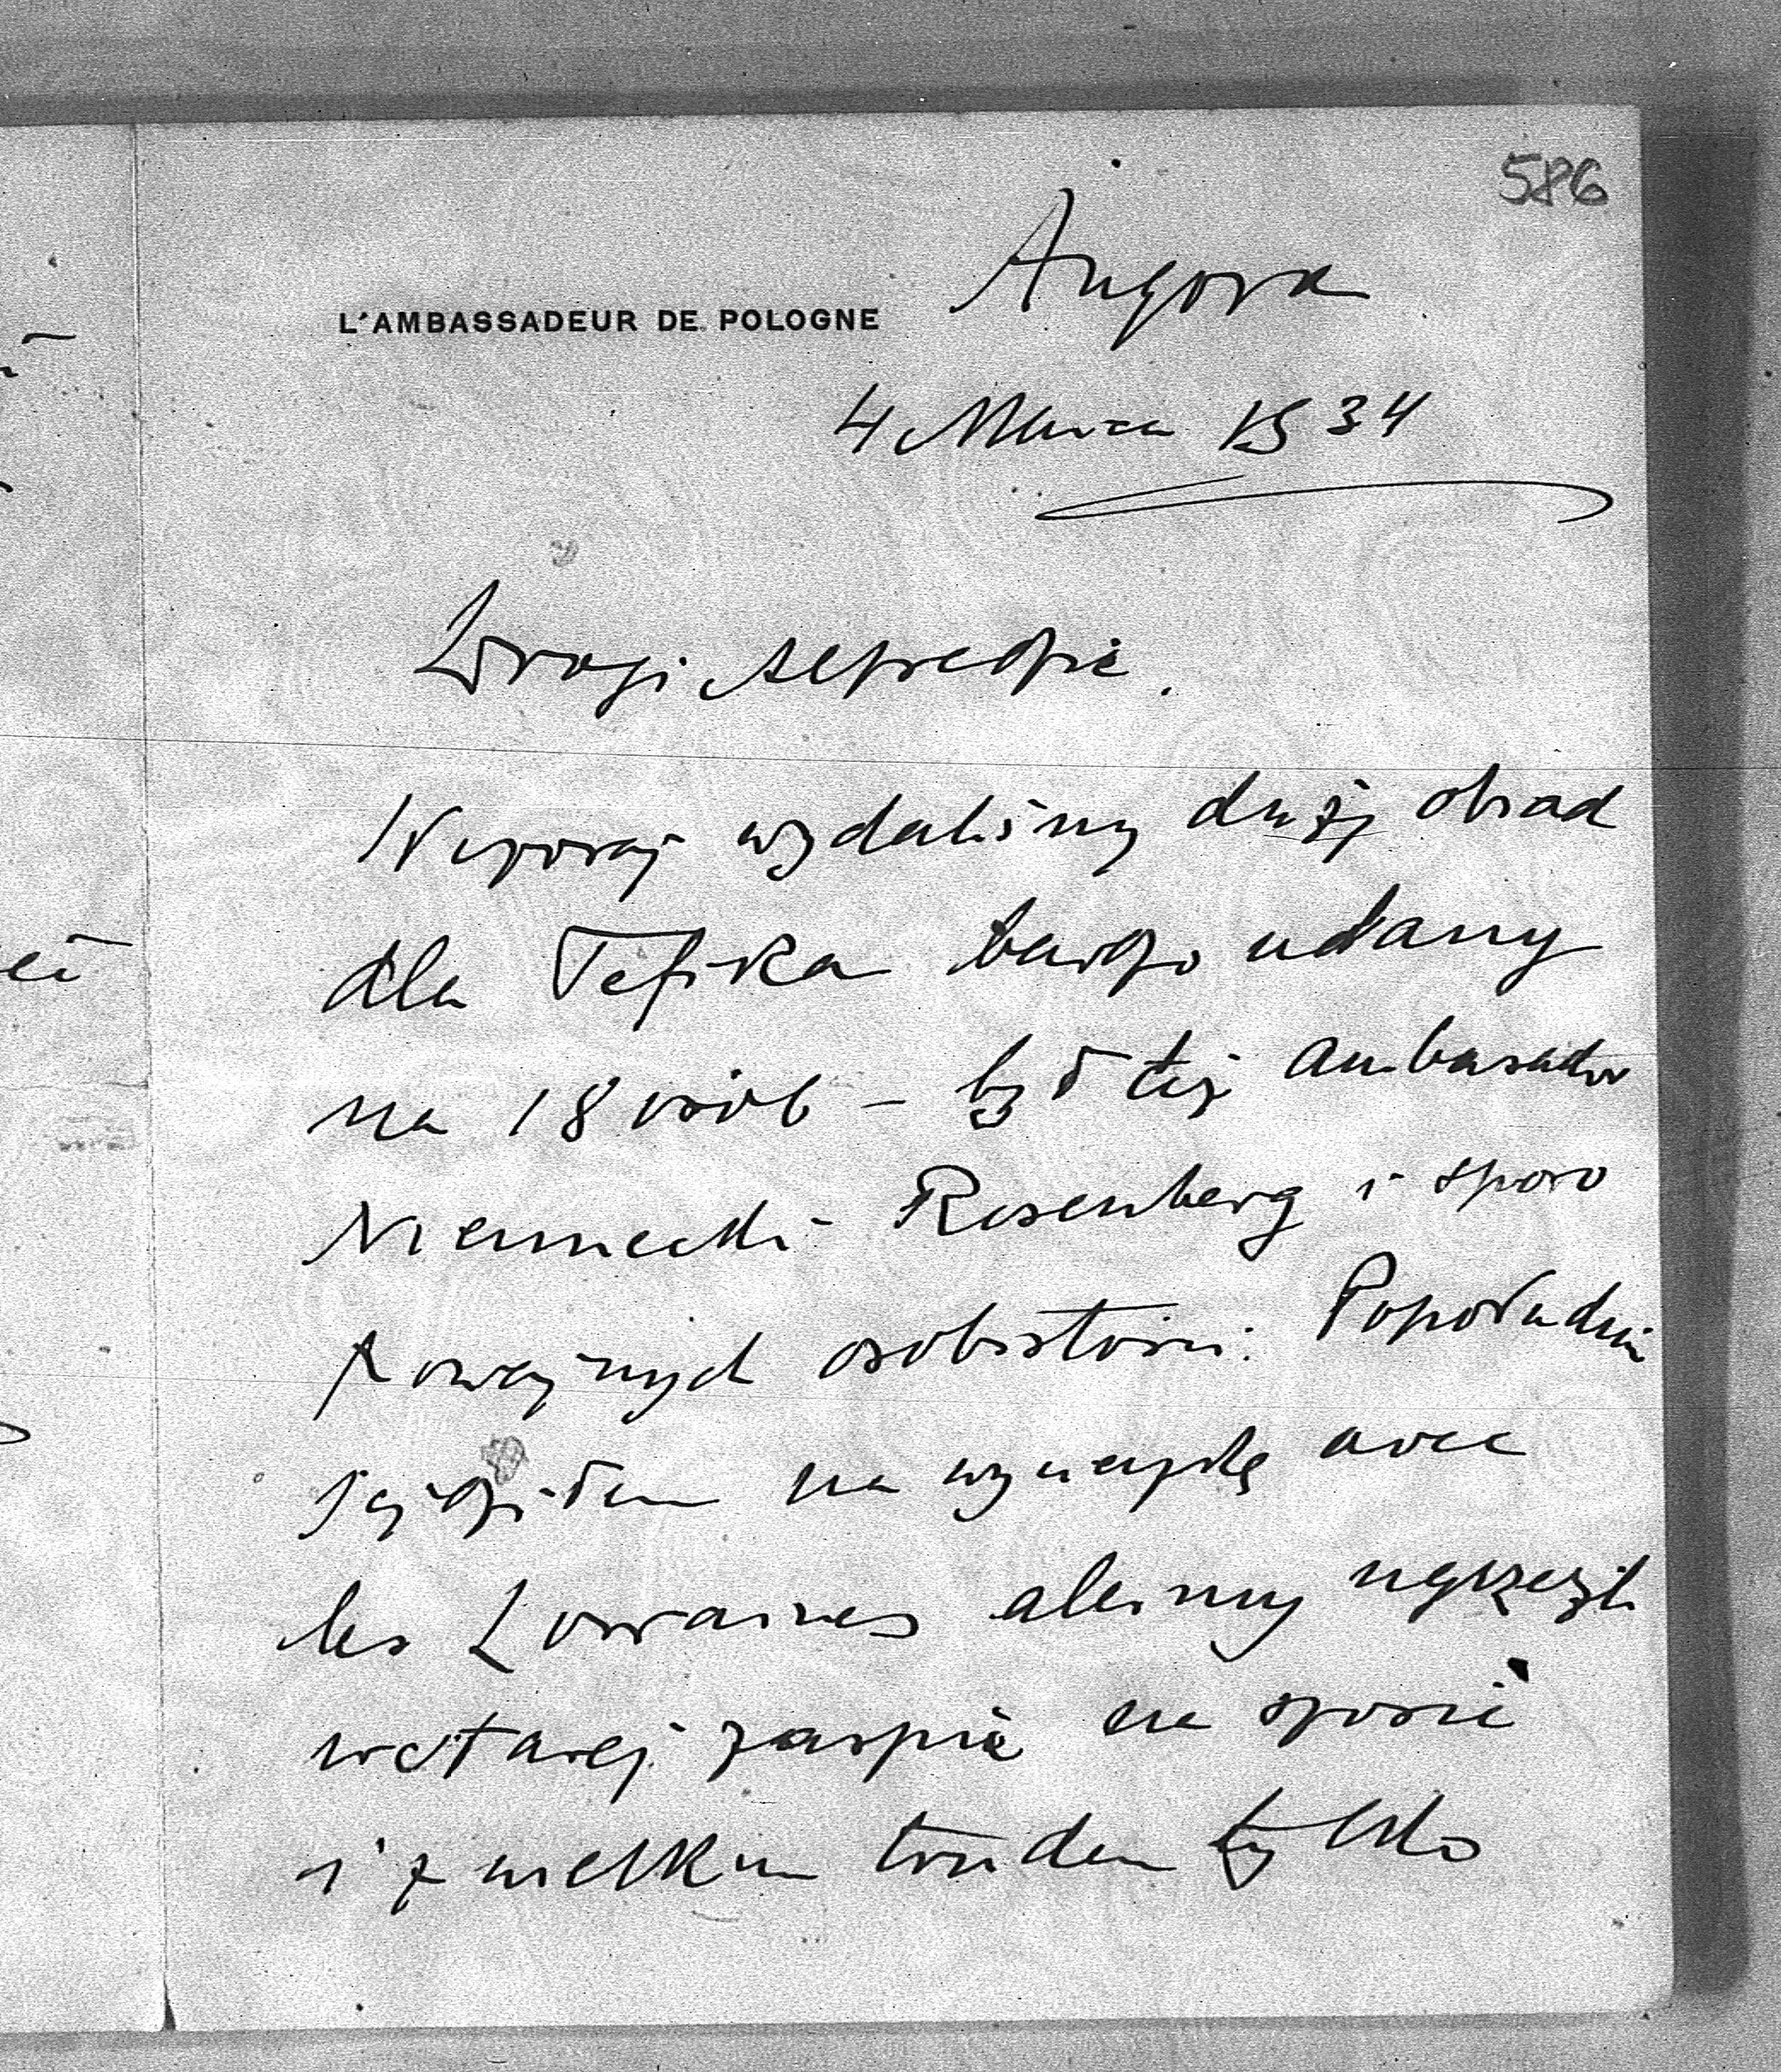 586
Angora
L'AMBASSADEUR DE POLOGNE
4 Marca 1934
Drogi Alfredzie.
Wczoraj wydaliśmy duży obiad
dla Tefika bardzo udany
na 18 osób – był też ambasador
Niemiecki Rosenberg i sporo
poważnych osobistości. Popołudniu
na wycieczkę avec
les Lorraines aleśmy ugrzęźli
w starej zaspie na szosie
i z wielkim trudem tylko